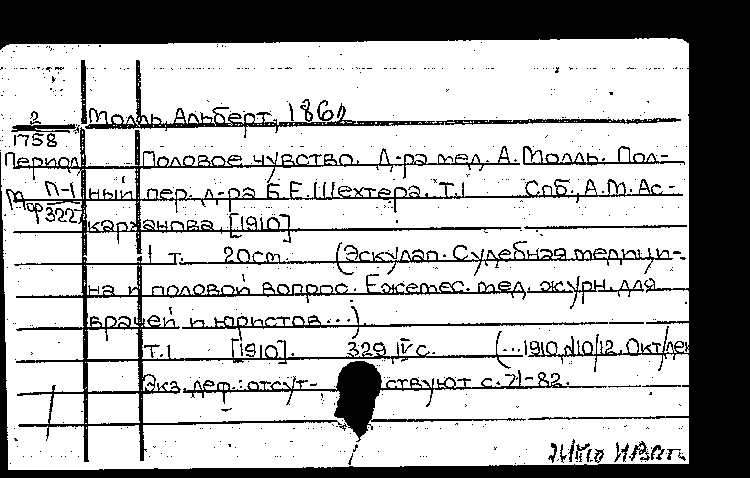 2 Молль, Альберт, 1862
1758
Период Половое чувство. Д-ра мед. А. Молль. Пол-
П-1 ный пер. д-ра Б.Е. Шехтера. Т.1 Спб., А.М. Ас-
322 карханова, [1910]
1 т. 20 см. (Эскулап. Судебная медици-
на и половой вопрос. Ежемес. мед. журн. для
врачей и юристов...)
Т.1 [1910]. 329, IV с. (...1910, №10/12. Окт/дек
Экз. деф.: отсут- ствуют с. 71-82.